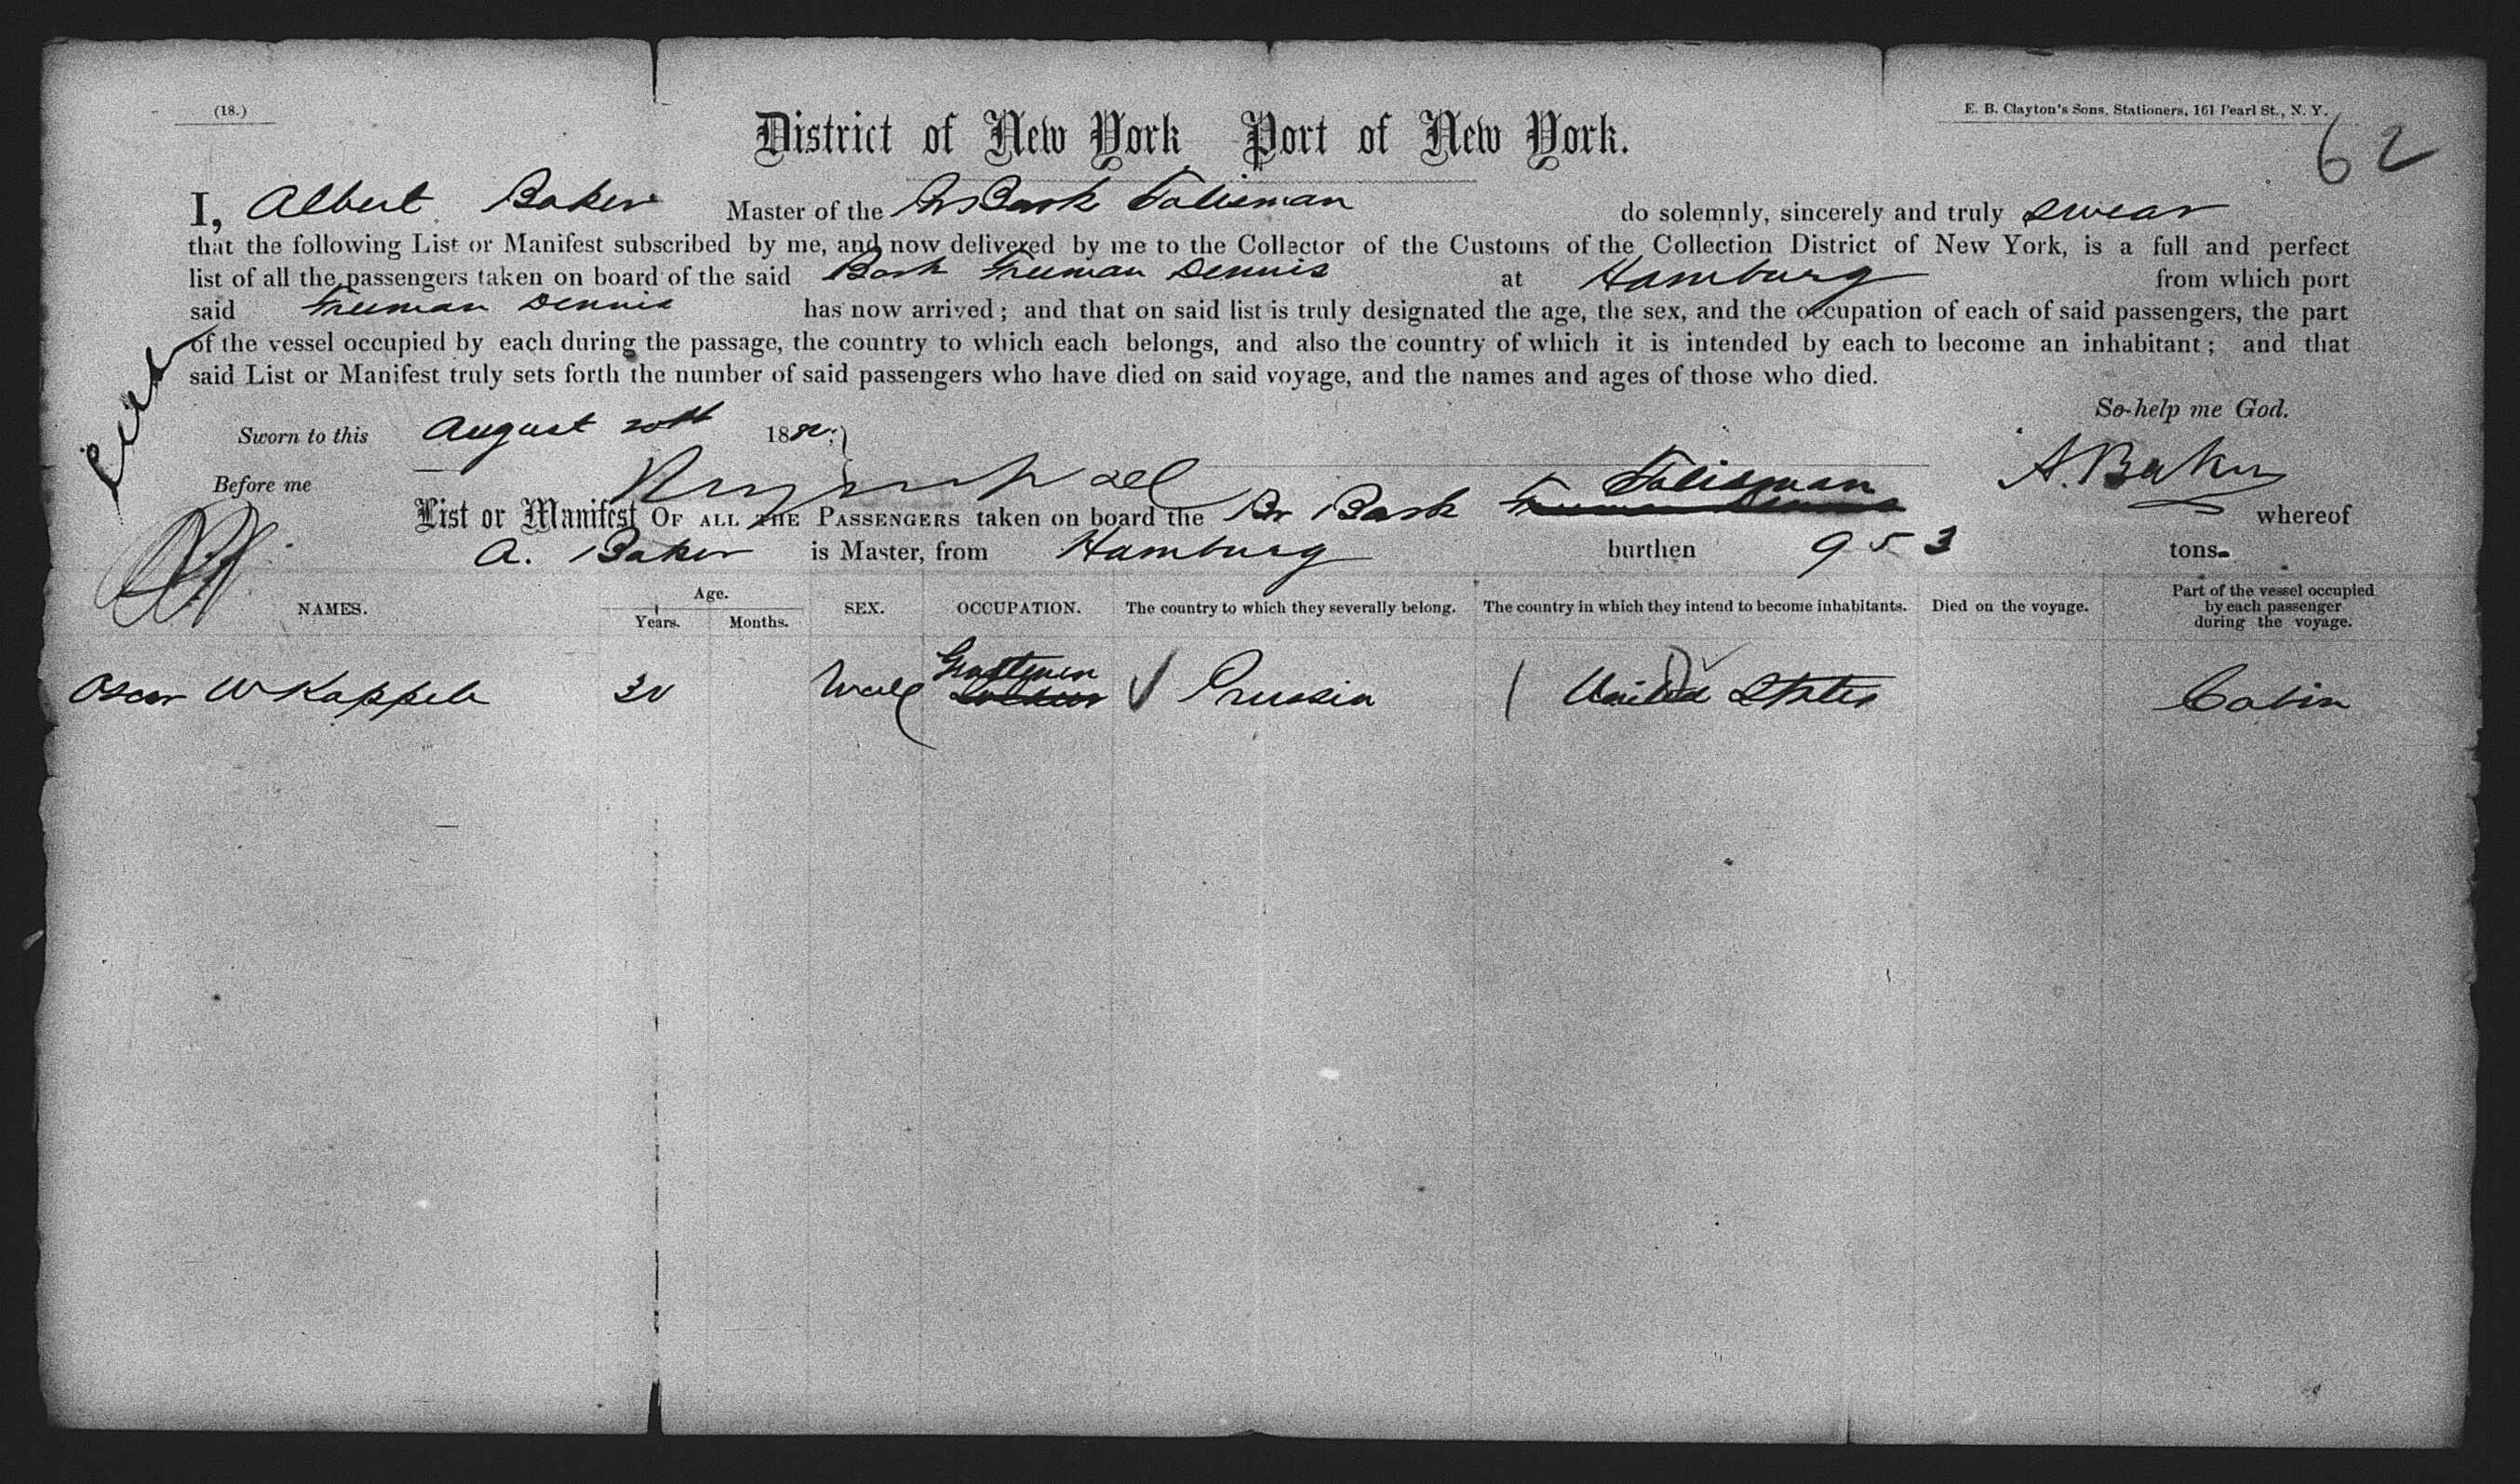 (18.)
E. B. Clayton's Sons, Stationers, 161 Pearl St., N. Y.
62
District of New York Port of New York.
I, Albert Baker Master of the Br Bark Talisman do solemnly, sincerely and truly swear
that the following List or Manifest subscribed by me, and now delivered by me to the Collector of the Customs of the Collection District of New York, is a full and perfect
list of all the passengers taken on board of the said Bark Freeman Dennis at Hamburg from which port
said Freeman Dennis has now arrived; and that on said list is truly designated the age, the sex, and the occupation of each of said passengers, the part
of the vessel occupied by each during the passage, the country to which each belongs, and also the country of which it is intended by each to become an inhabitant; and that
said List or Manifest truly sets forth the number of said passengers who have died on said voyage, and the names and ages of those who died.
So help me God.
Sworn to this August 20th 18
A. Baker
Before me
Talisman
List or Manifest OF ALL THE PASSENGERS taken on board the Br Bark whereof
A. Baker is Master, from Hamburg burthen 953 tons.
NAMES. Age. Years. Months. SEX. OCCUPATION. The country to which they severally belong. The country in which they intend to become inhabitants. Died on the voyage. Part of the vessel occupied by each passenger during the voyage.
Gentleman
Oscar W Kappele Male Prussia United States Cabin